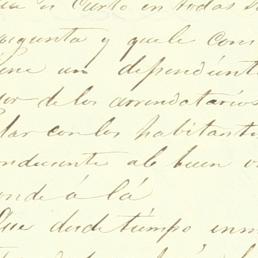 es cierto en todas
pregunta y que le cons
un dependiente
de los arrendatarios
dar con los habitante
onducente al buen
onde á la
Que desde tiempo inm